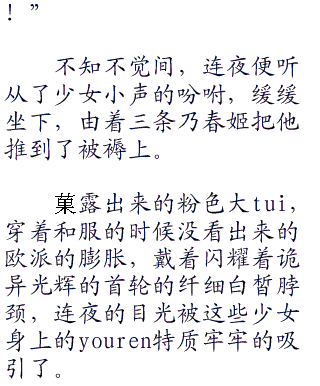 ！”
不知不觉间，连夜便听
从了少女小声的吩咐，缓缓
坐下，由着三条乃春姬把他
推到了被褥上。
菓露出来的粉色大tui，
穿着和服的时候没看出来的
欧派的膨胀，戴着闪耀着诡
异光辉的首轮的纤细白皙脖
颈，连夜的目光被这些少女
身上的youren特质牢牢的吸
引了。